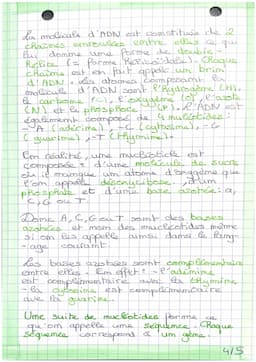 La molécule d'ADN est constituée de 2
chaînes enroulées entre elles ce qui
lui donne une forme de double-
hélice (= forme hélicoïdale). Chaque
chaîne est en fait appelé un brin
d'ADN. Les atomes composant la
molécule d'ADN sont l'hydrogène (H),
le carbone (C), l'oxygène (O), l'azote
(N) et le phosphore (P). L'ADN est
également composé de 4 nucléotides :
- A (adénine), - C (cytosine), - G
(guanine), - T (thymine).
En réalité, une nucléotide est
composée d'une molécule de sucre
où il manque un atome d'oxygène que
l'on appelle désoxyribose, d'un
phosphate et d'une base azotée : A,
C, G ou T.
Donc A, C, G ou T sont des bases
azotées et non des nucléotides même
si on les appelle ainsi dans le lang-
-age courant.
Les bases azotées sont complémentaire
entre elles. En effet : - l'adénine
est complémentaire avec la thymine
- la cytosine est complémentaire
avec la guanine.
Une suite de nucléotides forme ce
qu'on appelle une séquence. Chaque
séquence correspond à un gène.
4/5